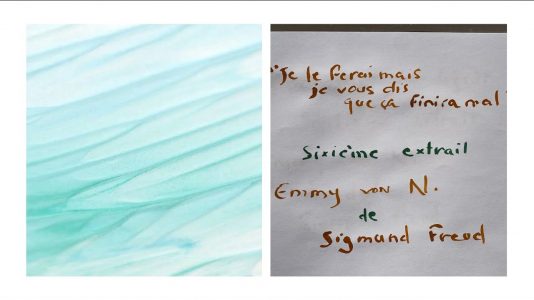 "Je le ferai mais
je vous dis
que ça finira mal"
Sixième extrait
Emmy von N.
de
Sigmund Freud